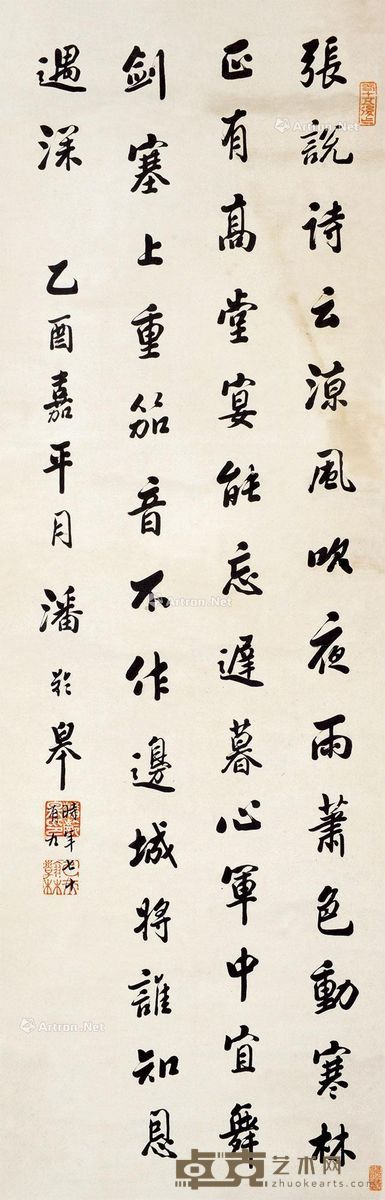 張說詩云涼風吹夜雨蕭色動寒林
正有高堂宴能忘遲暮心軍中宜舞
劍塞上重笳音不作邊城將誰知恩
遇深
乙酉嘉平月潘齡皋
時年七十
有九
Artron.Net
Artron.Net
Artron.Net
Artron.Net
卓克艺术网
zhuokearts.com